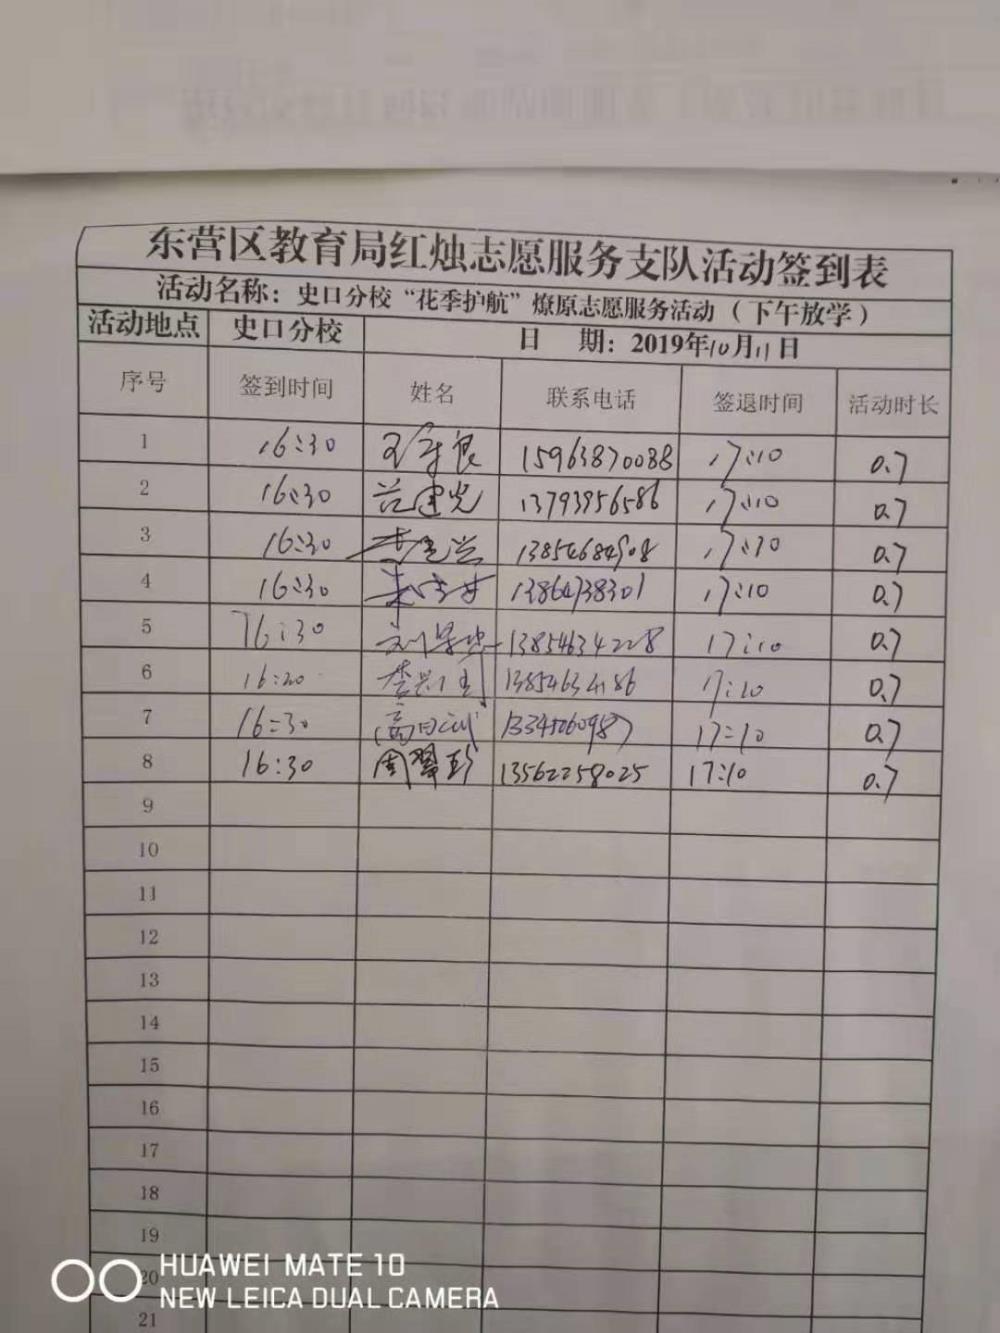 东营区教育局红烛志愿服务支队活动签到表
活动名称：史口分校“花季护航”燎原志愿服务活动（下午放学）
活动地点 史口分校 日 期：2019年10月11日
序号 签到时间 姓名 联系电话 签退时间 活动时长
1 16:30 15963870088 17:10 0.7
2 16:30 范建光 13793956586 17:10 0.7
3 16:30 13854684908 0.7
4 16:30 13864738301 17:10 0.7
5 16:30 13854634228 17:10 0.7
6 16:20 17:10 0.7
7 16:30 17:10 0.7
8 16:30 周翠珍 13562258025 17:10 0.7
9
10
11
12
13
14
15
16
17
18
19
20
21
HUAWEI MATE 10
NEW LEICA DUAL CAMERA